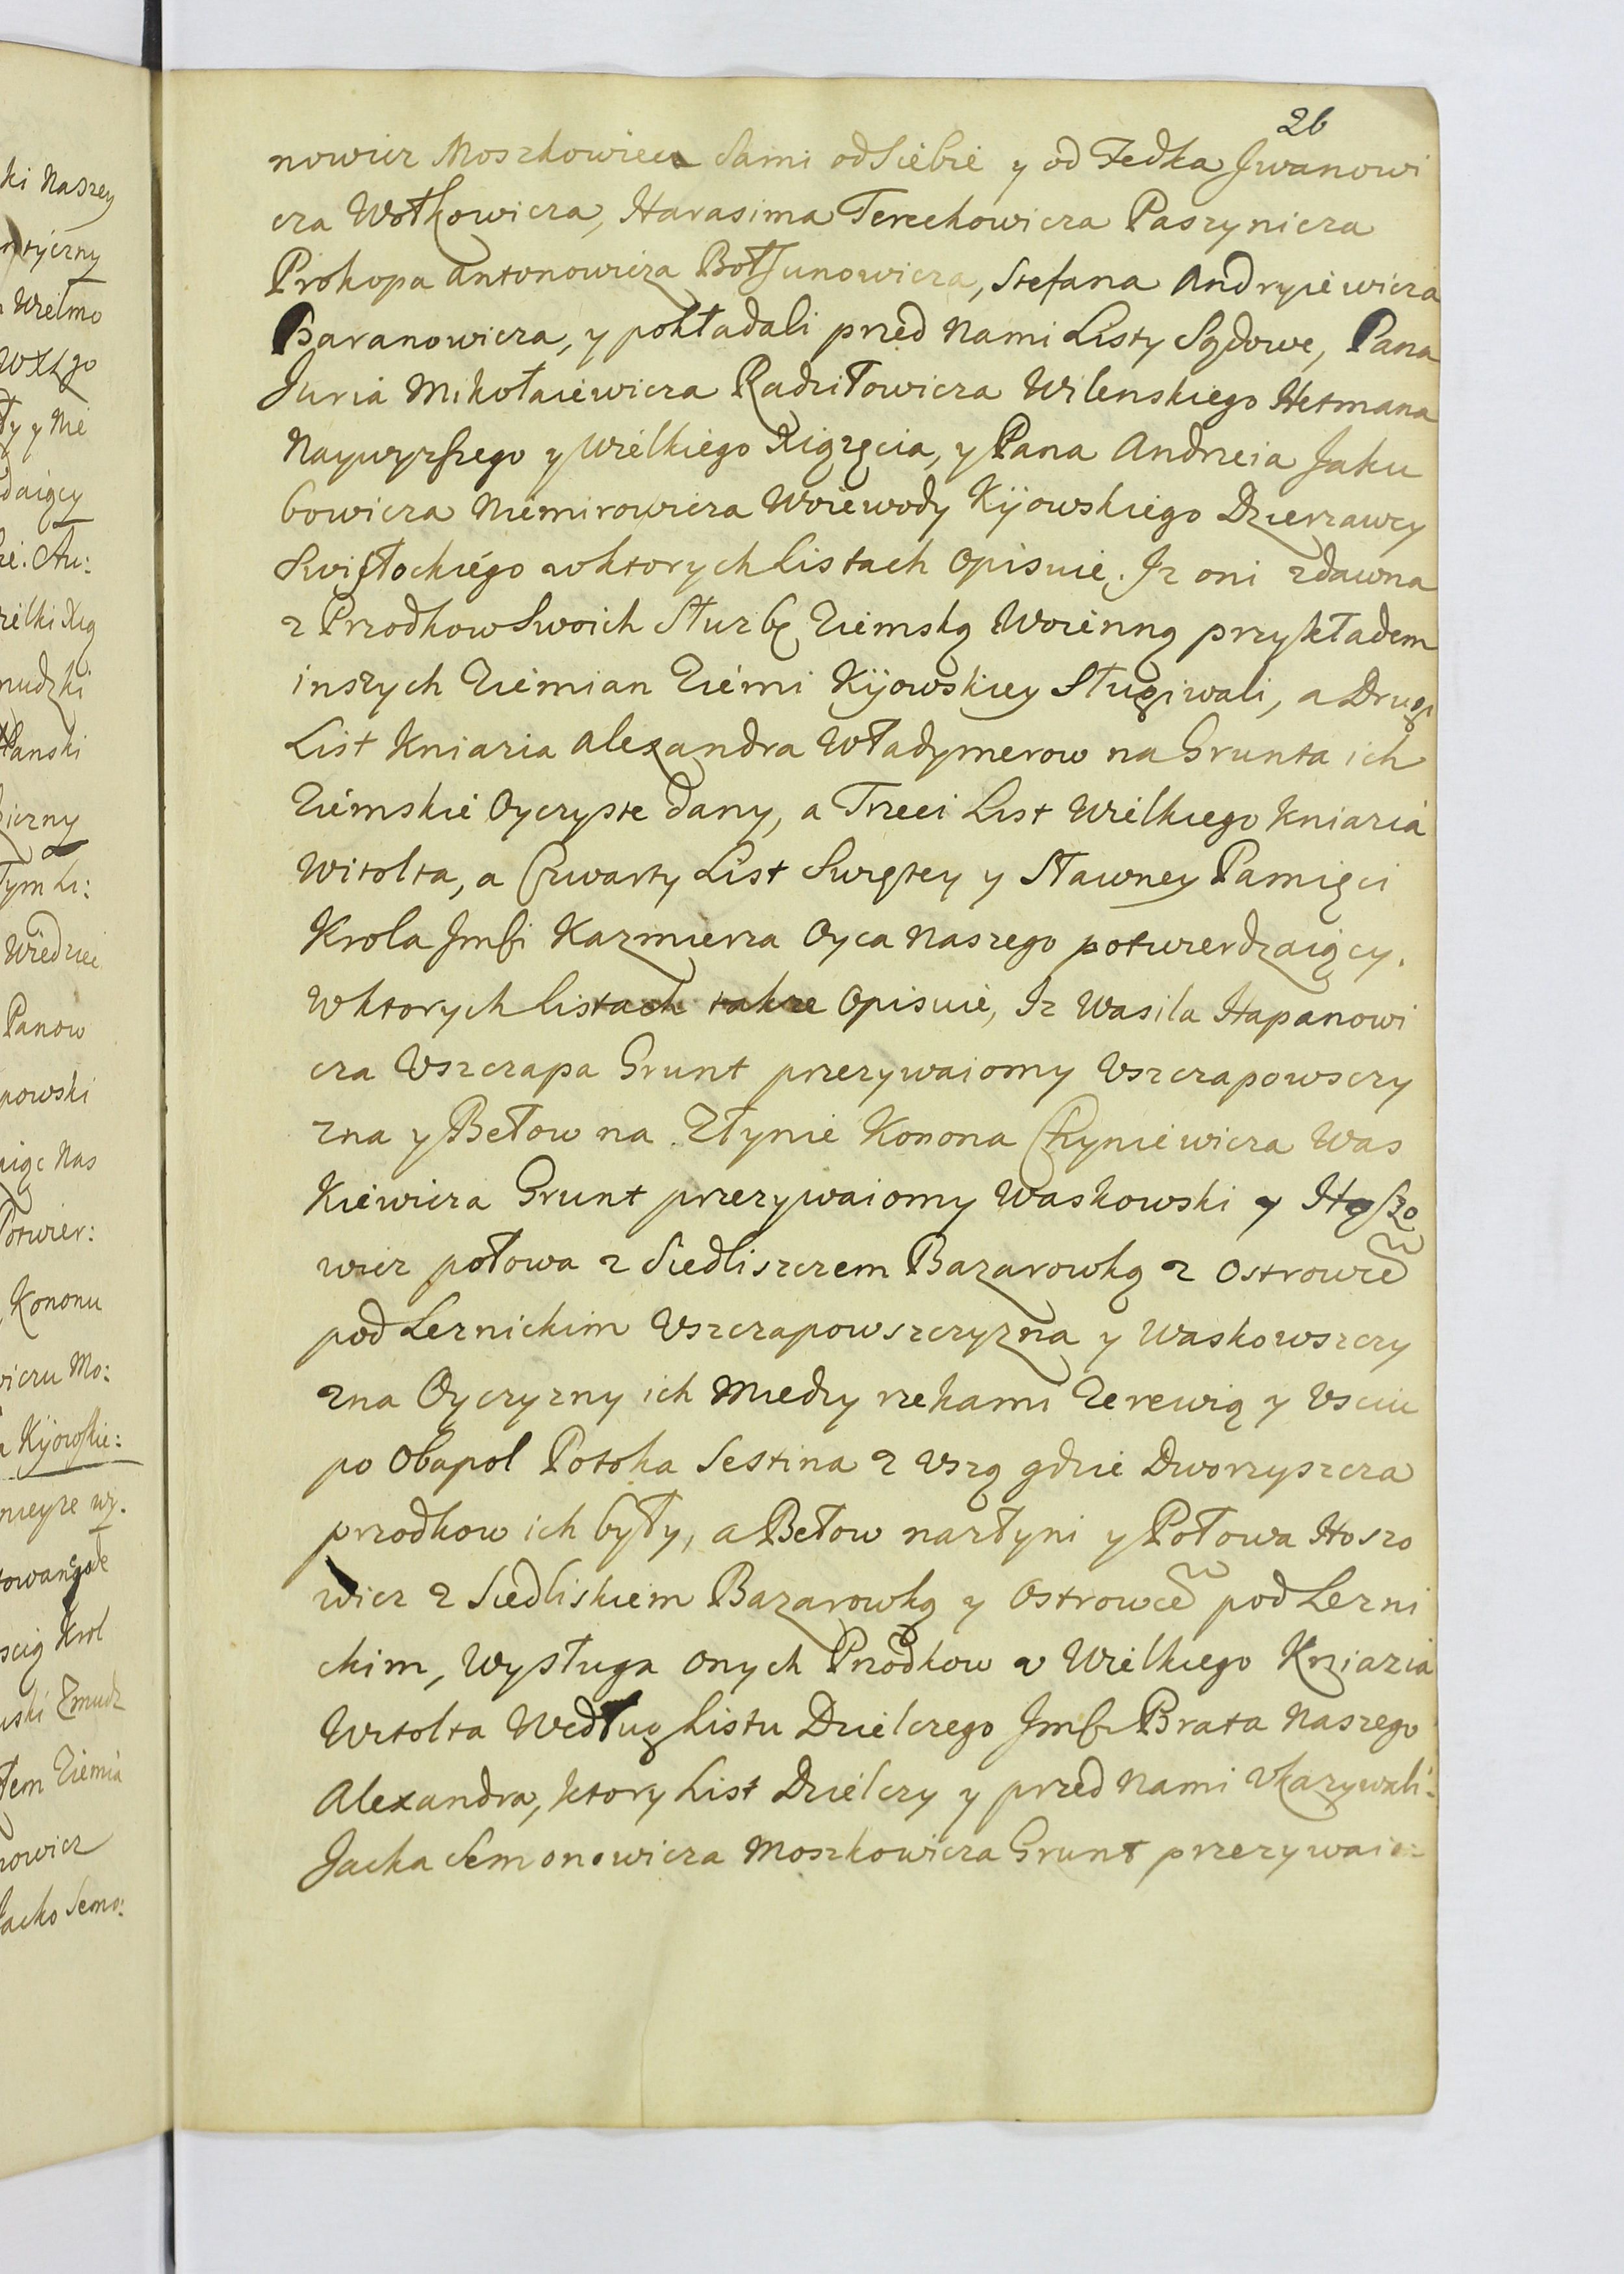 26
nowicz Moszkowicza Sami od Siebie y od Fedka Jwanowi
cza Wołkowicza, Harasima Terechowicza Paszynicza
Prokopa Antonowicza Bołsunowicza, Stefana Andryiewicza
Baranowicza, y pokładali przed Nami Listy Sądowe, Pana
Juria Mikołaiewicza Radziłowicza Wilenskiego Hetmana
Naywyzszego y Wielkiego Xiązęcia, y Pana Andrzeia Jaku
bowicza Niemirowicza Woiewody Kijowskiego Dzierzawcy
Swisłockiego w ktorych Listach Opisuie. Jz oni zdawna
z Przodkow Swoich Służbę Ziemską Woienną przykładem
inszych Ziemian Ziemi Kijowskiey Sługiwali, a Drugi
List Kniazia Alexandra Władymerow na Grunta ich
Ziemskie Oyczyste dany, a Trzeci List Wielkiego Kniazia
Witolta, a Czwarty List Swiętey y Sławney Pamięci
Krola Jmści Kazmierza Oyca Naszego potwierdzaiący.
W ktorych Listach takze Opisuie, Iz Wasila Hapanowi
cza Vszczapa Grunt przezywaiomy Vszczapowsczy
zna y Bełow na Złynie Konona Chyniewicza Was
kiewicza Grunt przezywaiomy Waskowski y Hoszo
wicz połowa z Siedliszczem Bazarowką z Ostrowcē
pod Leznickim Vszczapowszczyzna y Waskowszczy
zna Oyczyzny ich Miedzy rzekami Zerewią y Vsciu
po Obapol Potoka Sestina z Vszą gdzie Dworzyszcza
przodkow ich były, a Bełow nazłyni y Połowa Hoszo
wicz z Siedliskiem Bazarowką y Ostrowcē pod Lezni
ckim, Wysługa onych Przodkow v Wielkiego Kniazia
Witolta Według Listu Dzielczego Jmści Brata Naszego
Alexandra, ktory List Dzielczy y przed Nami Vkazywali:
Jacka Semonowicza Moszkowicza Grunt przezywaio: